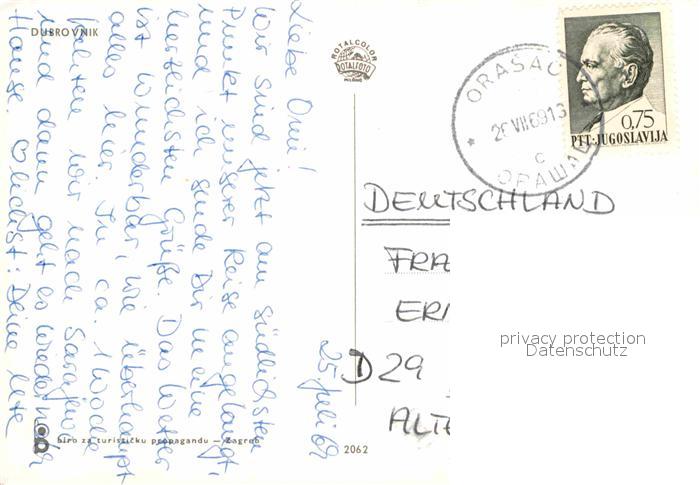 DUBROVNIK
25. Juli 69
Liebe Omi!
Wir sind jetzt am südlichsten
Punkt unserer Reise angelangt,
und ich sende Dir meine
herzlichsten Grüße. Das Wetter
ist wunderbar, wie überhaupt
alles hier. In ca. 1 Woche
wir nach Sarajevo
und dann geht es wieder nach
Hause. Deine
ROTALCOLOR
ROTALFOTO
MILANO
ORAŠAC
26 VII 69 13
c
ОРАШАЦ
0,75
PTT·JUGOSLAVIJA
DEUTSCHLAND
FRA
ERN
D 29
ALTE
privacy protection
Datenschutz
biro za turističku propagandu — Zagreb
2062